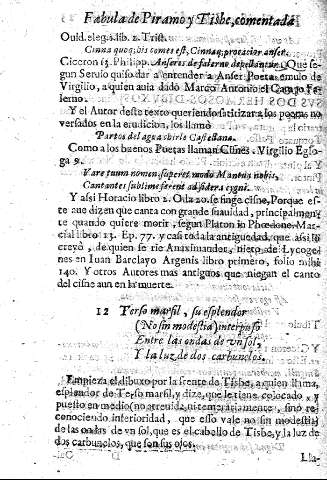 Fabula de Piramo y Tisbe, comentada
Ouid. eleg. 1. lib. 2. Trist.
Cinna quoq; his comes est, Cinnaq; procacior anser.
Ciceron 13. Philipp. Anseres de falerno depellantur. Que se-
gun Seruio quiso dar a entender a Anser Poeta emulo de
Virgilio, a quien auia dado Marco Antonio el Campo Fa-
lerno.
Y el Autor deste texto queriendo satirizar a los poetas no
versados en la erudicion, los llamò
Partos del agua chirle Castellana.
Como a los buenos Poetas llaman Cisnes. Virgilio Eglo-
ga 9.
Vare tuum nomen, superet modo Mantua nobis,
Cantantes sublime ferent ad sidera cygni.
Y assi Horacio libro 2. Oda 20. se finge cisne, Porque es-
te aue dizen que canta con grande suauidad, principalmen-
te quando quiere morir, segun Platon in Phedone, Mar-
cial libro 13. Ep. 77. y casi toda la antiguedad, que assi lo
creyò, de quien se rie Anaximander, nieto de Lycoge-
nes en Iuan Barclayo Argenis libro primero, folio mihi
140. Y otros Autores mas antiguos que niegan el canto
del cisne aun en la muerte.
12 Terso marfil, su esplendor
(No sin modestia) interpuso
Entre las ondas de vn sol,
Y la luz de dos carbunclos.
Empieza el dibuxo por la frente de Tisbe, a quien llama,
esplendor de Terso marfil, y dize, que le tiene colocado, y
puesto en medio (no atreuida, ni temerariamente, sino re-
conociendo inferioridad, que esso vale no sin modestia)
de las ondas de vn sol, que es el cabello de Tisbe, y la luz de
dos carbunclos, que son sus ojos.
Lla-